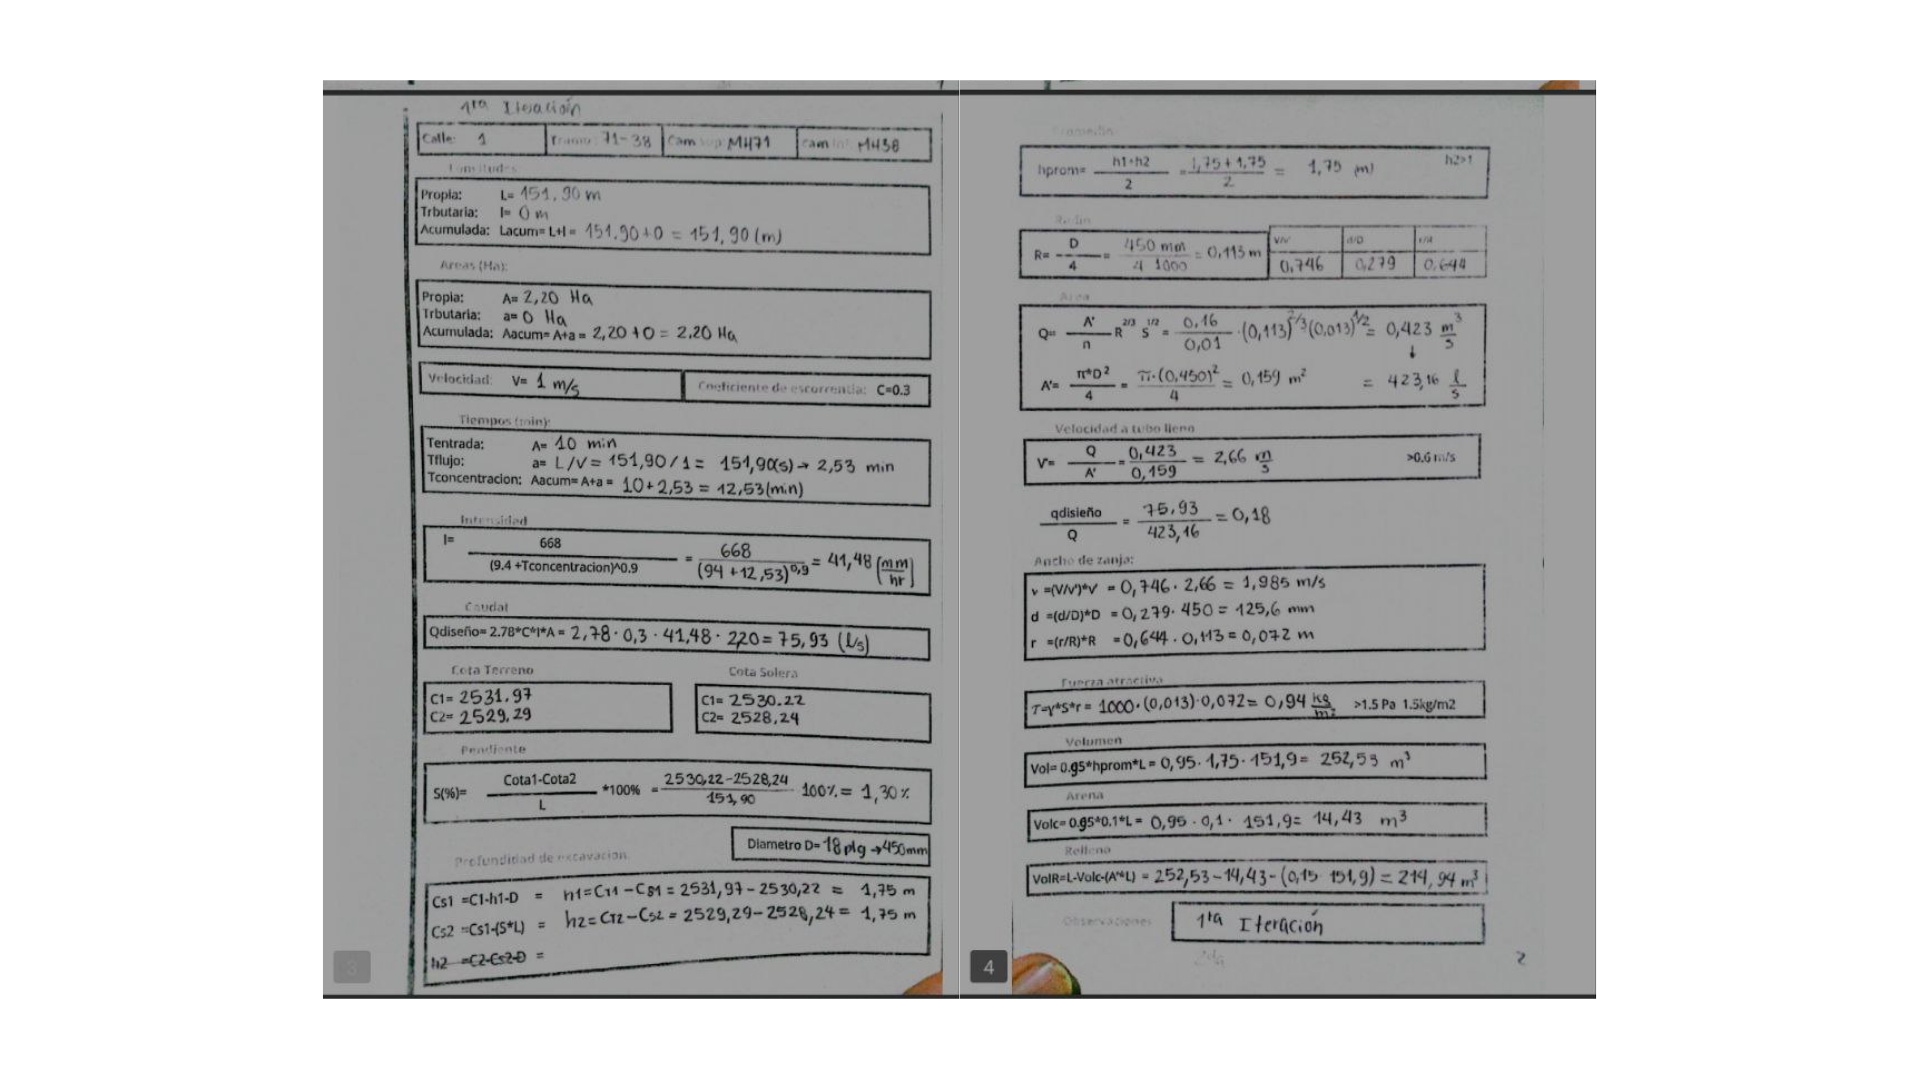 1ra Iteración
Calle: 1 Tramo: 71-38 Cam sup: MH71 Cam inf: MH38
Longitudes
Propia: L= 151,90 m
Trbutaria: l= 0 m
Acumulada: Lacum= L+l = 151,90+0 = 151,90 (m)
Areas (Ha):
Propia: A= 2,20 Ha
Trbutaria: a= 0 Ha
Acumulada: Aacum= A+a = 2,20 +0 = 2.20 Ha
Velocidad: V= 1 m/s Coeficiente de escorrentia: C=0.3
Tiempos (min):
Tentrada: A= 10 min
Tflujo: a= L/V = 151,90/1 = 151,90(s) → 2,53 min
Tconcentracion: Aacum= A+a = 10+2,53 = 12,53(min)
Intensidad
I= 668 / (9.4 +Tconcentracion)^0.9 = 668 / (94 +12,53)^0,9 = 41,48 (mm/hr)
Caudal
Qdiseño= 2.78*C*I*A = 2,78 · 0,3 · 41,48 · 2,20 = 75,93 (l/s)
Cota Terreno Cota Solera
C1= 2531.97 C1= 2530.22
C2= 2529,29 C2= 2528,24
Pendiente
S(%)= Cota1-Cota2 / L *100% = 2530,22-2528,24 / 151,90 · 100% = 1,30 %
Diametro D= 18 plg → 450mm
Profundidad de excavacion
Cs1 =C1-h1-D = h1=CT1 -CS1 = 2531,97 - 2530,22 = 1,75 m
Cs2 =Cs1-(S*L) = h2= CT2 - CS2 = 2529,29 - 2528,24 = 1,75 m
h2 =C2-Cs2-D =
3
Promedio
hprom= h1+h2 / 2 = 1,75 + 1,75 / 2 = 1,75 (m) h2>1
Radio
R= D / 4 = 450 mm / 4 1000 = 0,113 m V/V' d/D r/R
0,746 0,279 0,644
Area
Q= A' / n R 2/3 S 1/2 = 0,16 / 0,01 · (0,113)^2/3 (0,013)^1/2 = 0,423 m³/s
↓
A'= π*D² / 4 = π·(0,450)² / 4 = 0,159 m² = 423,16 l/s
Velocidad a tubo lleno
V'= Q / A' = 0,423 / 0,159 = 2,66 m/s >0.6 m/s
qdisieño / Q = 75,93 / 423,16 = 0,18
Ancho de zanja:
v =(V/v')*v' = 0,746 · 2,66 = 1,985 m/s
d =(d/D)*D = 0,279 · 450 = 125,6 mm
r =(r/R)*R = 0,644 · 0,113 = 0,072 m
Fuerza atractiva
T=γ*S*r = 1000 · (0,013) · 0,072 = 0,94 kg/m² >1.5 Pa 1.5kg/m2
Volumen
Vol= 0.95*hprom*L = 0,95 · 1,75 · 151,9 = 252,53 m³
Arena
Volc= 0.95*0.1*L = 0,95 · 0,1 · 151,9 = 14,43 m³
Relleno
VolR=L-Volc-(A'*L) = 252,53 - 14,43 - (0,15 · 151,9) = 214,94 m³
Observaciones 1ra Iteración
2da
2
4